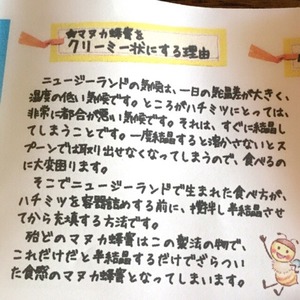 ★マヌカ蜂蜜を
クリーミー状にする理由
ニュージーランドの気候は、一日の気温差が大きく、
湿度の低い気候です。ところがハチミツにとっては、
非常に都合が悪い気候です。それは、すぐに結晶して
しまうことです。一度結晶すると溶かさないとス
プーンでは取り出せなくなってしまうので、食べるの
に大変困ります。
そこでニュージーランドで生まれた食べ方が、
ハチミツを容器詰めする前に、撹拌し半結晶させ
てから充填する方法です。
殆どのマヌカ蜂蜜はこの製法の物で、
これだけだと半結晶するだけでざらつい
た食感のマヌカ蜂蜜となってしまいます。